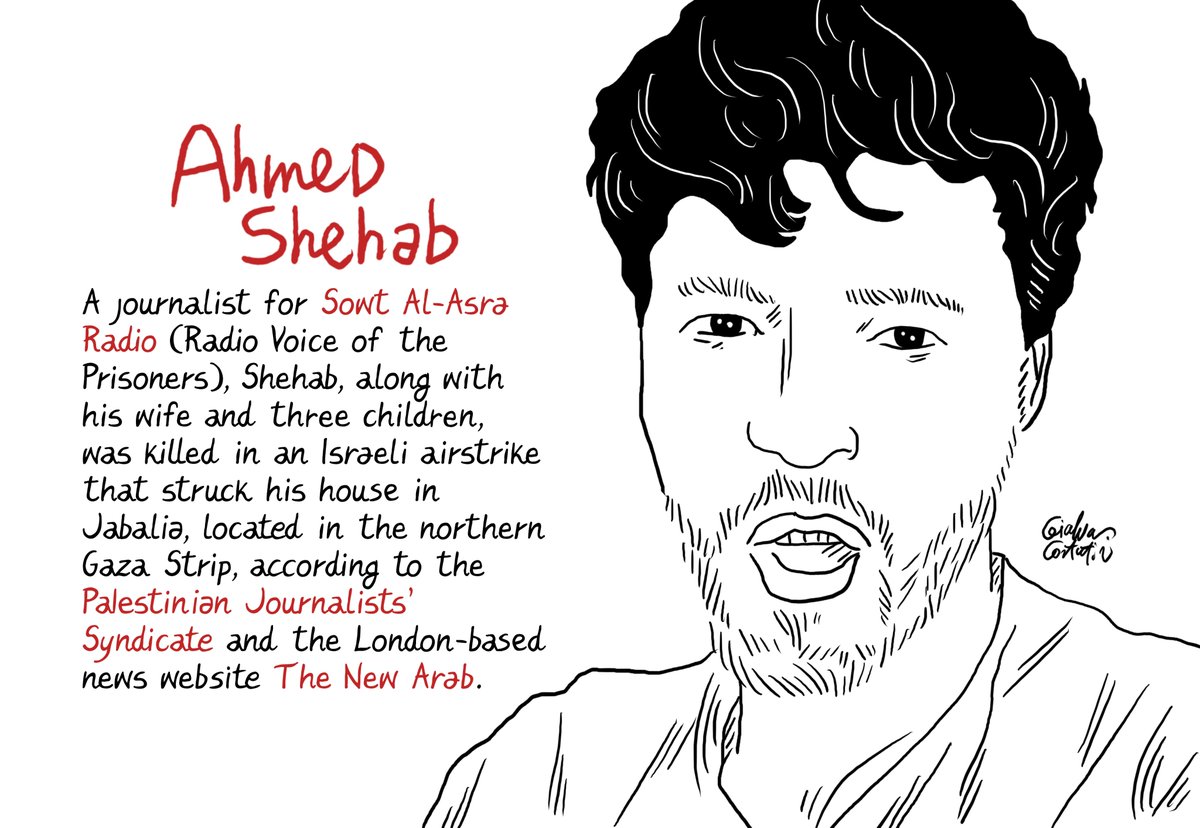 Ahmed
Shehab
A journalist for Sowt Al-Asra
Radio (Radio Voice of the
Prisoners), Shehab, along with
his wife and three children,
was killed in an Israeli airstrike
that struck his house in
Jabalia, located in the northern
Gaza Strip, according to the
Palestinian Journalists'
Syndicate and the London-based
news website The New Arab.